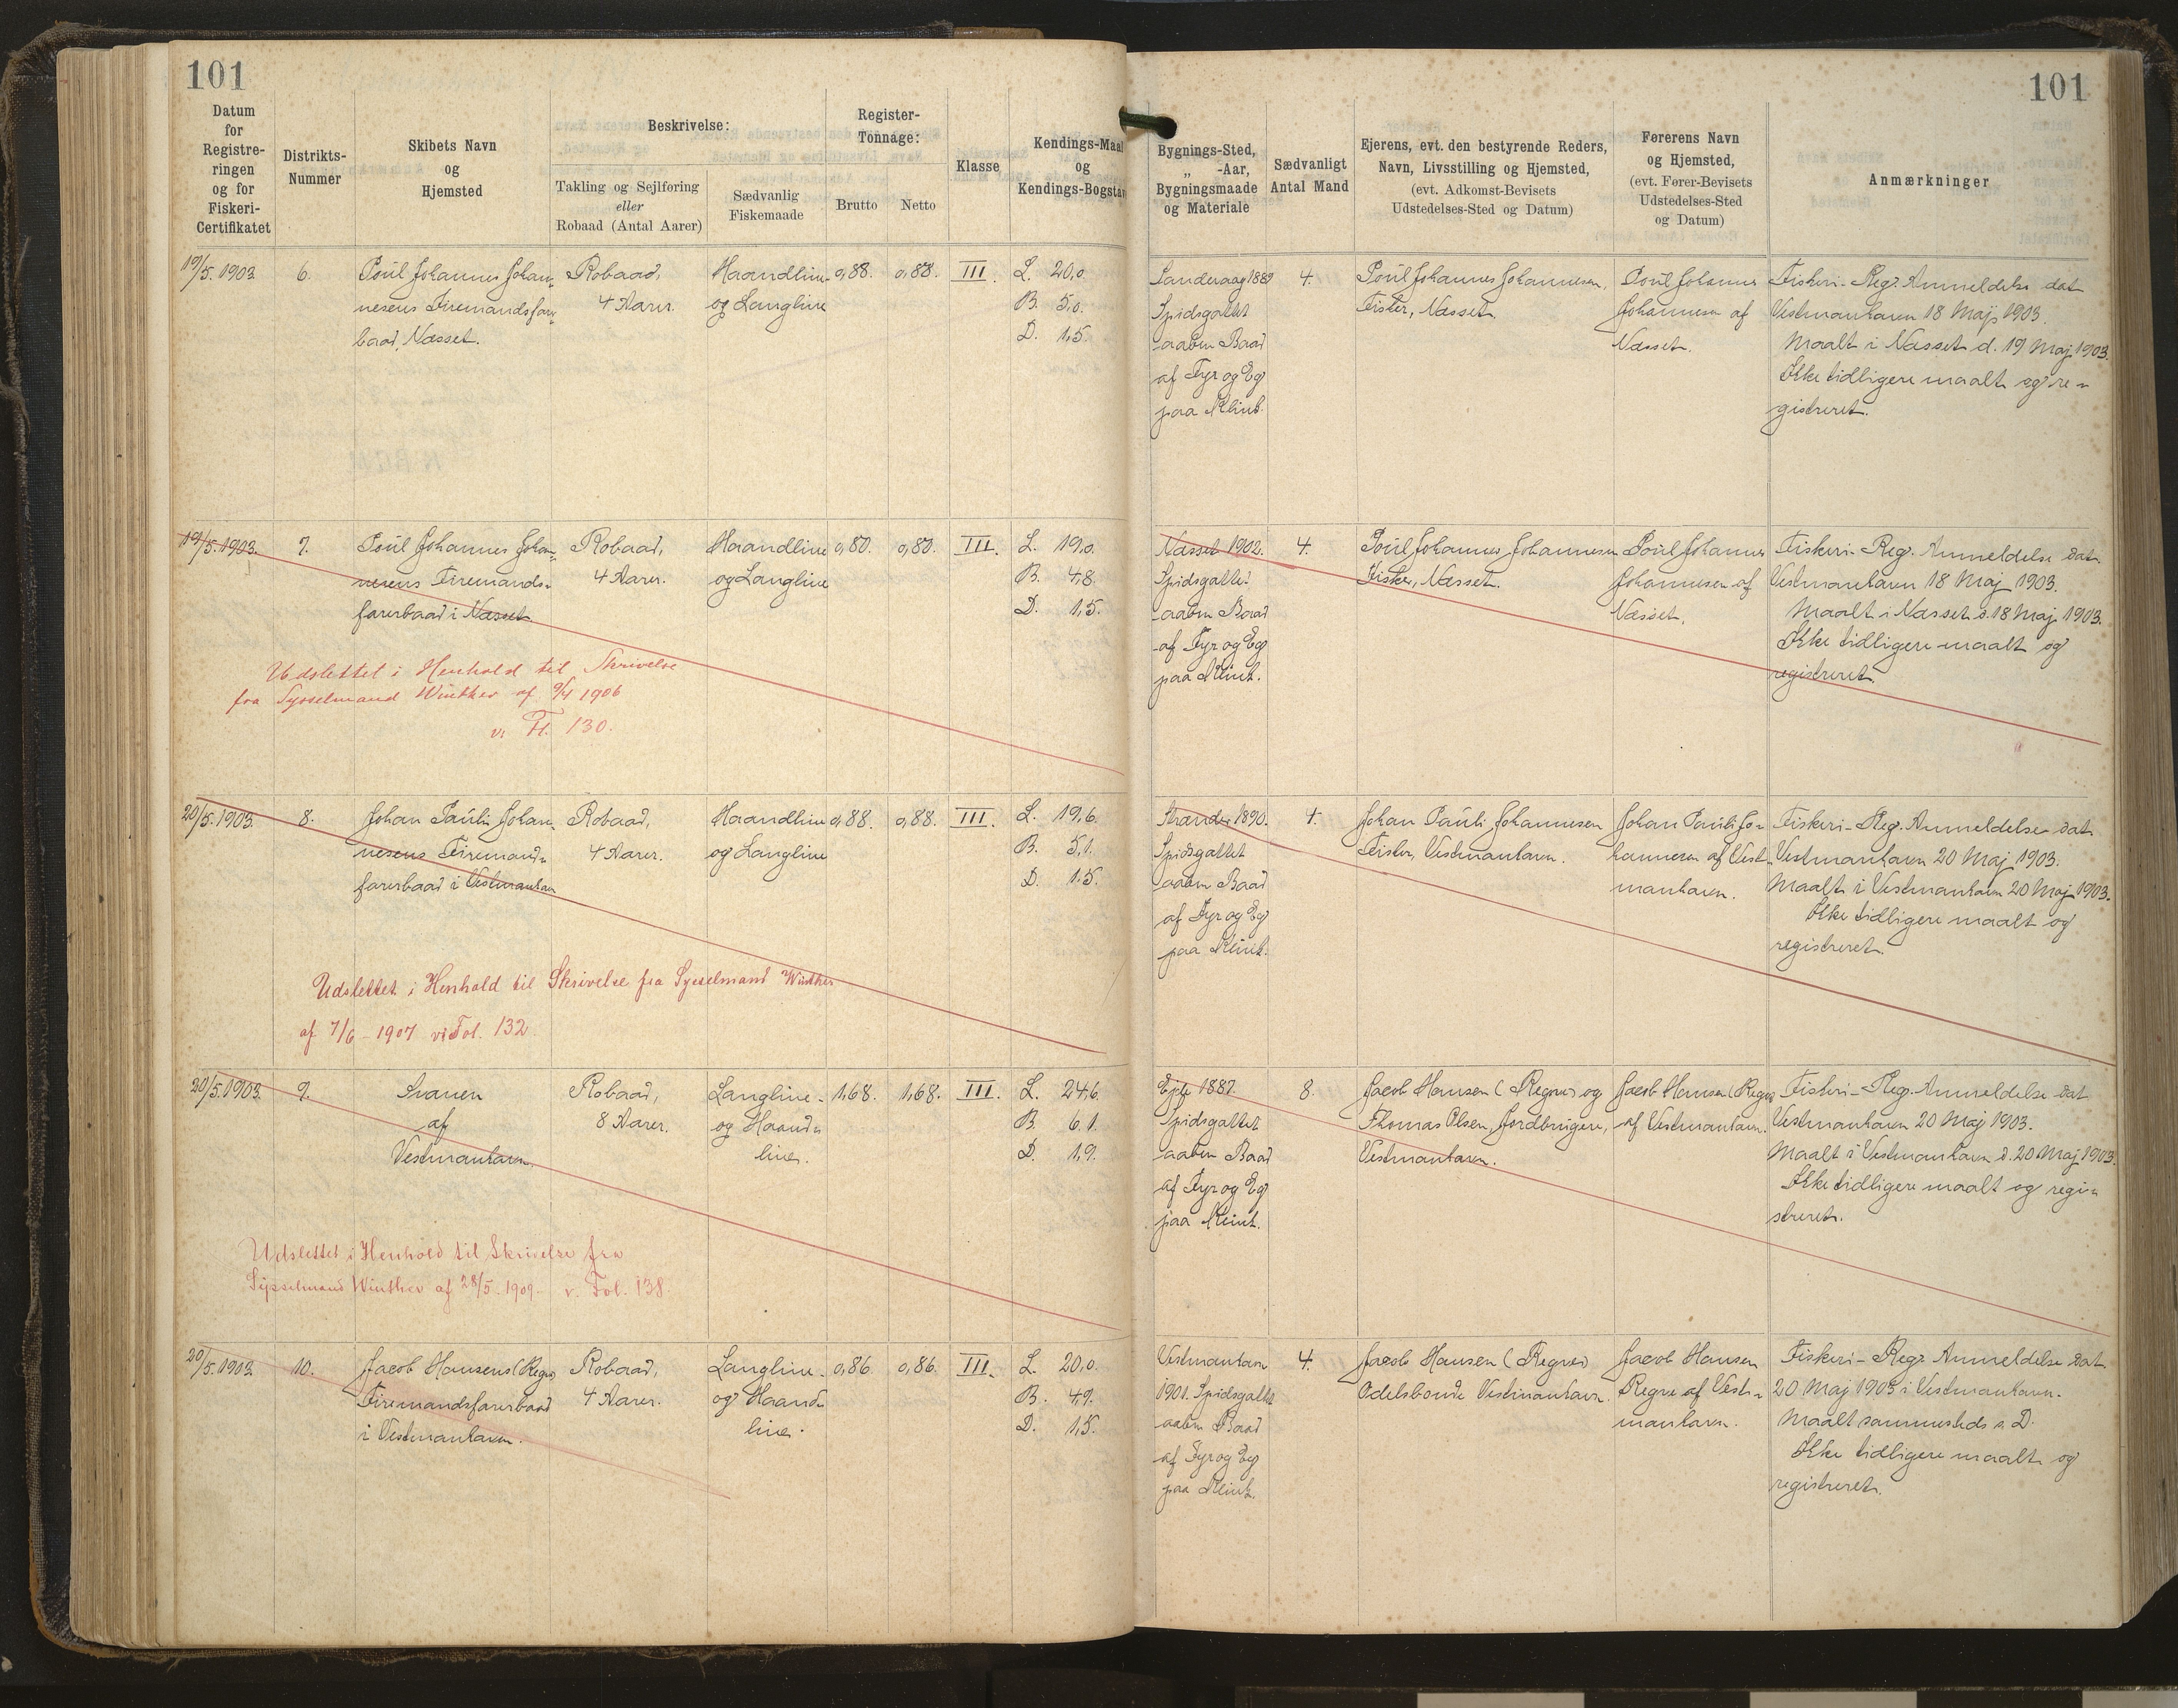 101
Datum
for
Registre-
ringen
og for
Fiskeri-
Certifikatet
Distrikts-
Nummer
Skibets Navn
og
Hjemsted
Beskrivelse:
Takling og Sejlføring
eller
Robaad (Antal Aarer)
Sædvanlig
Fiskemaade
Register-
Tonnage:
Brutto
Netto
Klasse
Kendings-Maal
og
Kendings-Bogstav
101
Bygnings-Sted,
„ -Aar,
Bygningsmaade
og Materiale
Sædvanligt
Antal Mand
Ejerens, evt. den bestyrende Reders,
Navn, Livsstilling og Hjemsted,
(evt. Adkomst-Bevisets
Udstedelses-Sted og Datum)
Førerens Navn
og Hjemsted,
(evt. Fører-Bevisets
Udstedelses-Sted
og Datum)
Anmærkninger
19/5. 1903.
6.
Poül Johannes Johan-
nesens Firemandsfarer-
baad, Næsset.
Robaad,
4 Aarer.
Haandline-
og Langline
0,88.
0,88.
III.
L. 20,0.
B. 5,0.
D. 1,5.
Sanderaag 1889
Spidsgattet
aaben Baad
af Fyr og Eg
paa Klink.
4.
Poül Johannes Johannesen,
Fisker, Næsset.
Poül Johannes
Johannesen af
Næsset.
Fiskeri-Reg. Anmeldelse dat.
Vestmanhavn 18 Maj 1903.
Maalt i Næsset d. 19 Maj 1903.
Ikke tidligere maalt og re-
gistreret.
19/5. 1903.
7.
Poül Johannes Johan-
nesens Firemands-
farerbaad i Næsset.
Robaad,
4 Aarer.
Haandline
og Langline
0,80.
0,80.
III.
L. 19,0.
B. 4,8.
D. 1,5.
Næsset 1902.
Spidsgattet
aaben Baad
af Fyr og Eg
paa Klink.
4.
Poül Johannes Johannesen
Fisker, Næsset.
Poül Johannes
Johannesen af
Næsset.
Fiskeri-Reg. Anmeldelse dat.
Vestmanhavn 18 Maj 1903.
Maalt i Næsset d. 18 Maj 1903.
Ikke tidligere maalt og
registreret.
Udslettet i Henhold til Skrivelse
fra Sysselmand Winther af 9/4 1906
v. Fl. 130.
20/5. 1903.
8.
Johan Paüli Johan-
nesens Firemands-
farerbaad i Vestmanhavn
Robaad,
4 Aarer.
Haandline
og Langline
0,88.
0,88.
III.
L. 19,6.
B. 5,1.
D. 1,5.
Strander 1890.
Spidsgattet
aaben Baad
af Fyr og Eg
paa Klink.
4.
Johan Paüli Johannesen
Fisker, Vestmanhavn.
Johan Paüli Jo-
hannesen af Vest-
manhavn.
Fiskeri-Reg. Anmeldelse dat.
Vestmanhavn 20 Maj 1903.
Maalt i Vestmanhavn 20 Maj 1903.
Ikke tidligere maalt og
registreret.
Udslettet i Henhold til Skrivelse fra Sysselmand Winther
af 7/6 - 1907 v. Fol. 132.
20/5. 1903.
9.
Svanen
af
Vestmanhavn.
Robaad,
8 Aarer.
Langline-
og Haand-
line.
1,68.
1,68.
III.
L. 24,6.
B. 6,1.
D. 1,9.
Ejde 1887.
Spidsgattet
aaben Baad
af Fyr og Eg
paa Klink.
8.
Jacob Hansen (Regne) og
Thomas Olsen, Jordbrügere,
Vestmanhavn.
Jacob Hansen (Regne)
af Vestmanhavn.
Fiskeri-Reg. Anmeldelse dat
Vestmanhavn 20 Maj 1903.
Maalt i Vestmanhavn d. 20 Maj 1903.
Ikke tidligere maalt og regi-
streret.
Udslettet i Henhold til Skrivelse fra
Sysselmand Winther af 28/5. 1909. v. Fol. 138.
20/5. 1903
10.
Jacob Hansens (Regne)
Firemandsfarerbaad
i Vestmanhavn.
Robaad,
4 Aarer.
Langline-
og Haand-
line.
0,86.
0,86.
III.
L. 20,0.
B. 4,9.
D. 1,5.
Vestmanhavn
1901. Spidsgattet
aaben Baad
af Fyr og Eg
paa Klink.
4.
Jacob Hansen (Regne)
Odelsbonde Vestmanhavn.
Jacob Hansen
Regne af Vest-
manhavn.
Fiskeri-Reg. Anmeldelse dat
20 Maj 1903 i Vestmanhavn.
Maalt sammesteds s. D.
Ikke tidligere maalt og
registreret.